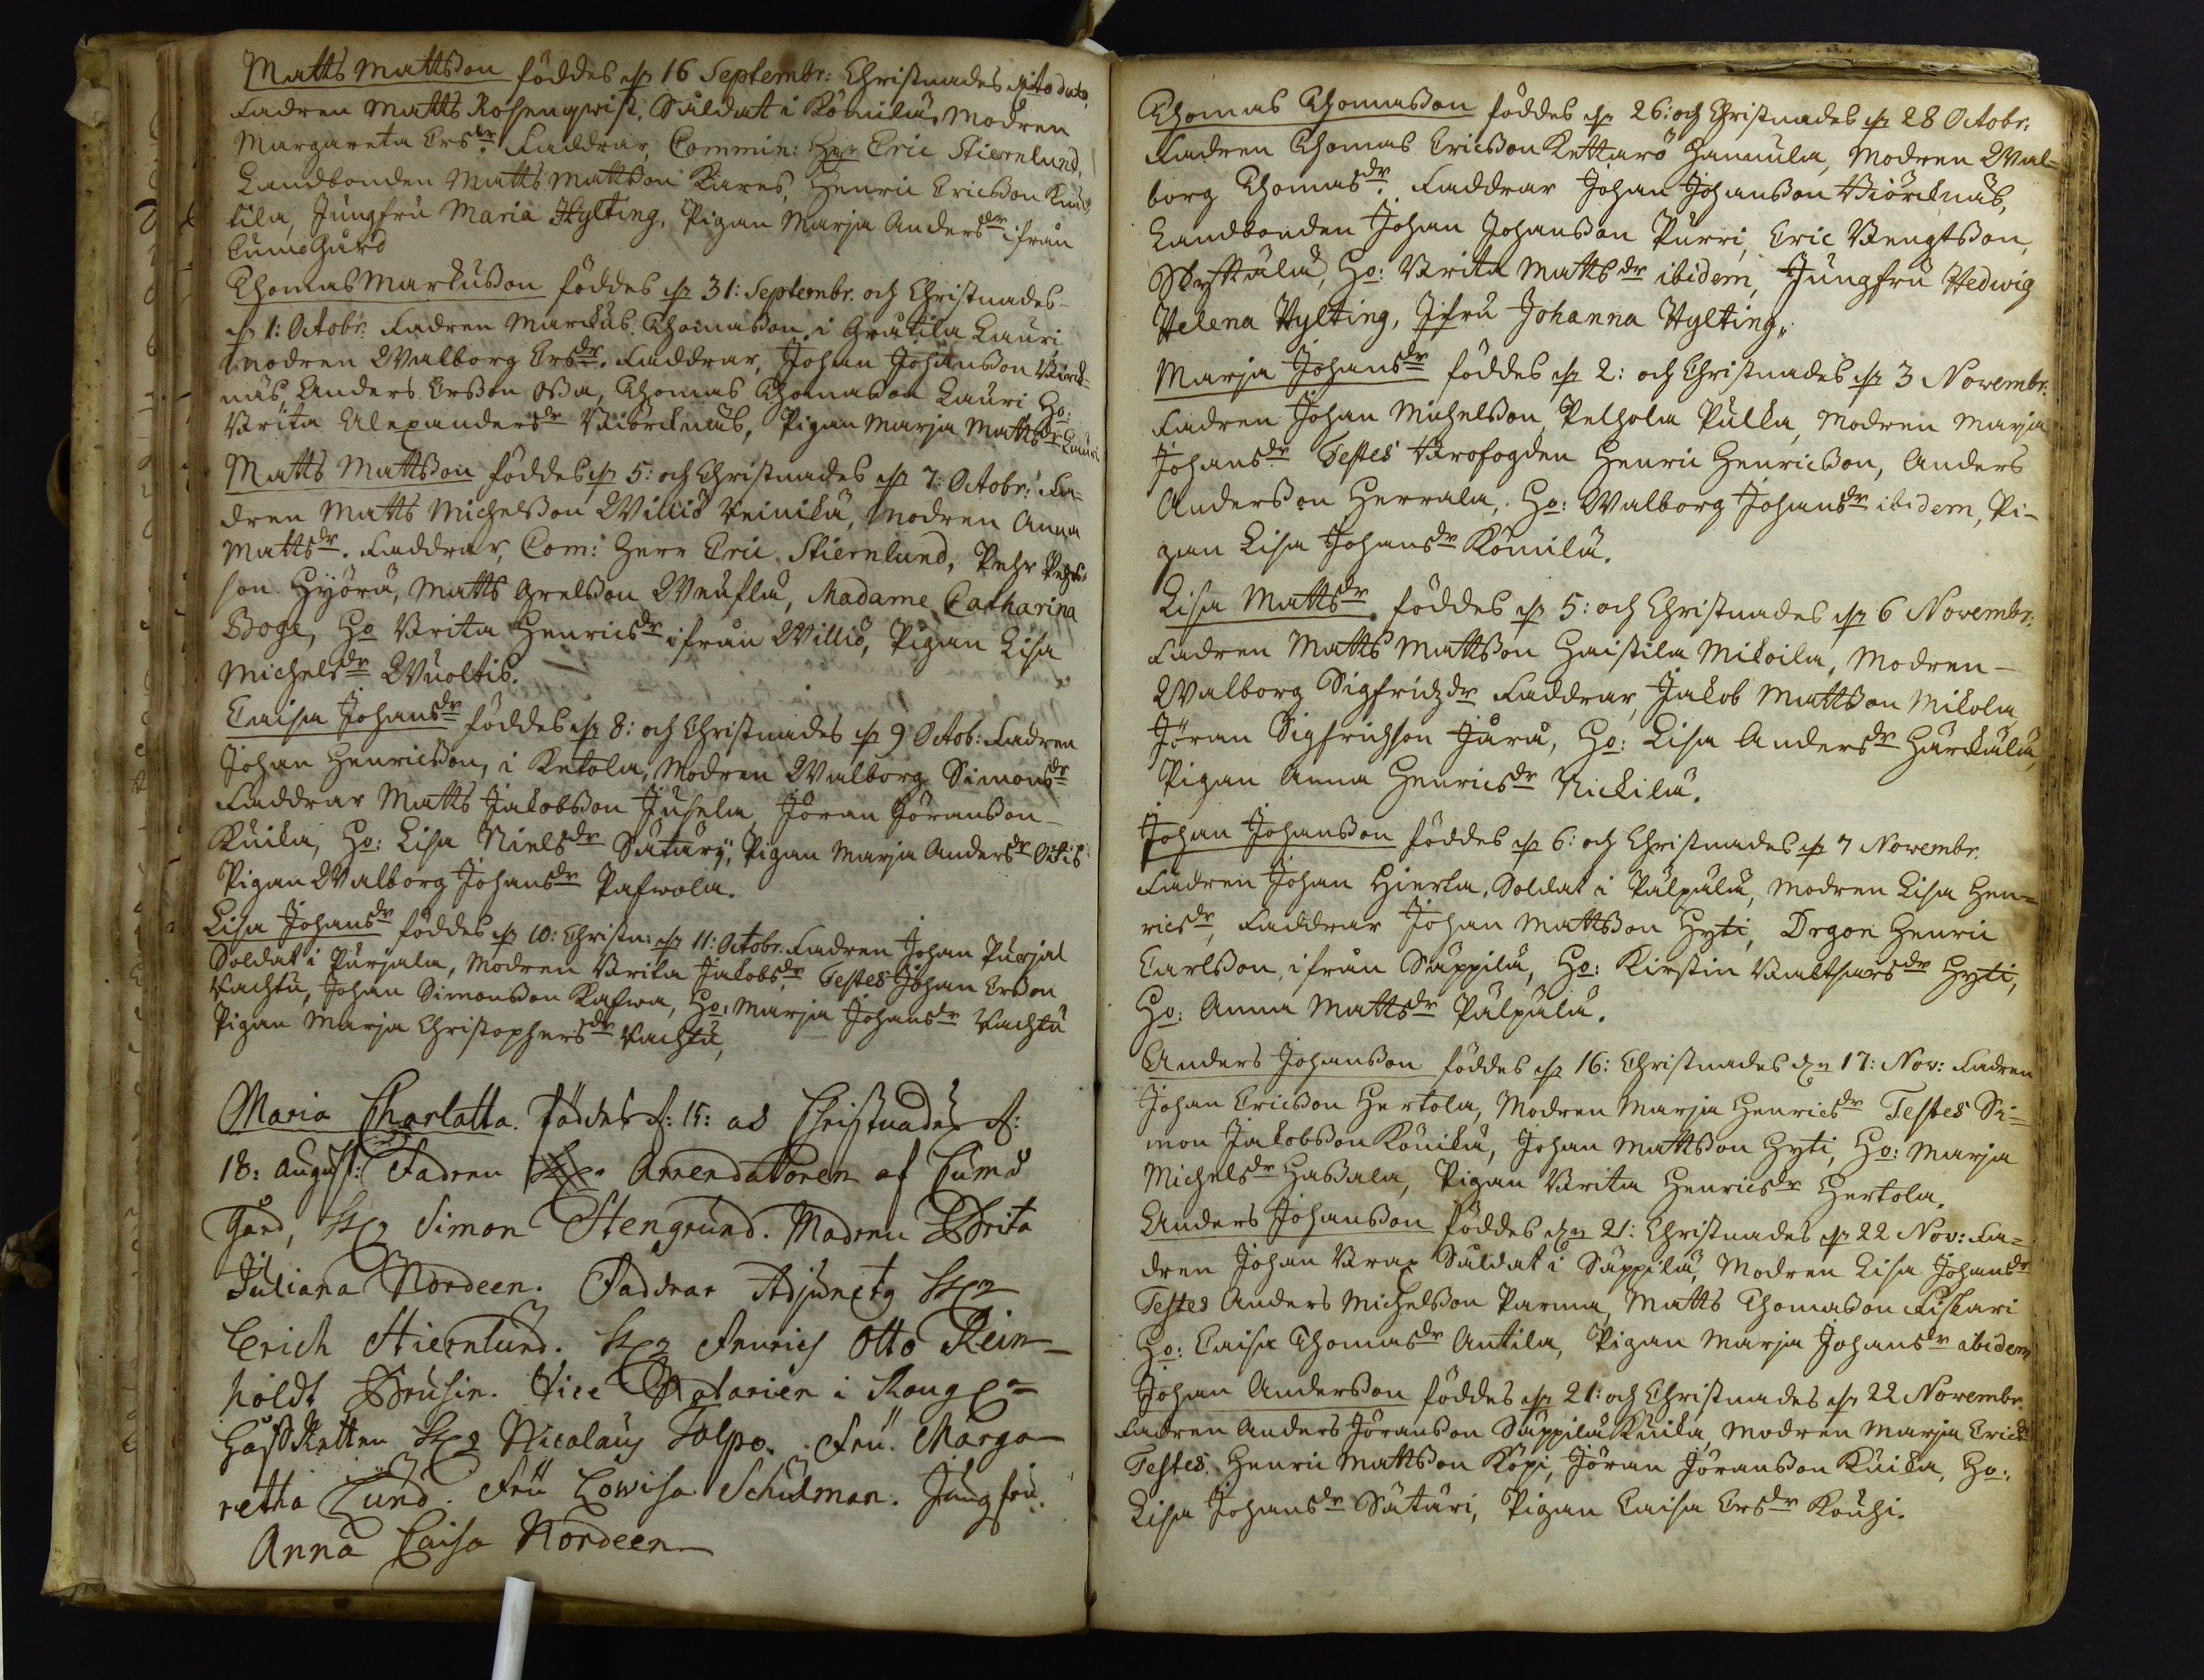 Matts Mattsson föddes d. 16 Septembr: Christnades dito dato,
Fadren Matts Rosenqwist, Saldat i Kömilä, Modren
Margareta Ersdr. Faddrar, Commin: Herr Eric Stiernlund,
Landbonden Matts Mattson Kares, Henric Ericsson
tila, Jungfru Maria Hylting, Pigan Marja Andersdr ifrån
Cumogård
Thomas Markusson föddes d. 31: Septembr. och Christnades
d. 1: Octobr. Fadren Markus Thomasson i Gratila Lauri
Modren Walborg Ersdr. Faddrar, Johan Johansson Biörk-
näs, Anders Ersson Ossa, Thomas Thomasson Lauri Ho:
Brita Alexandersdr Biörknäs, Pigan Marja Mattsdr Lauri
Matts Mattsson föddes d. 5: och Christnades d. 7: Octobr: Fa-
dren Matts Michelsson Williö Reinikä, Modren Anna
Mattsdr. Faddrar, Com: Herr Eric Stiernlund, Pehr Pehrs-
son Hyörä, Matts Grelsson Wäuflä, Madame Catharina
Boge, Ho Brita Henricsdr ifrån Williö, Pigan Lisa
Michelsdr Wuoltis.
Caisa Johansdr föddes d. 8: och Christnades d. 9 Octob: Fadren
Johan Henricsson, i Ketola, Modren Walborg Simonsdr
Faddrar Matts Jakobsson Jusela, Jöran Jöransson
Kuika, Ho: Lisa Nielsdr Sätäry, Pigan Marja Andersdr
Pigan Walborg Johansdr Pafwola.
Lisa Johansdr föddes d. 10: Christn: d. 11: Octobr. Fadren Johan Purjal
Soldat i Purjala, Modren Brita Jakobsdr. Testes Johan Ersson
Vachtu, Johan Simonsson Rafwa, Ho: Marja Johansdr Vachtu
Pigan Marja Christophersdr Vachtu,
Maria Charlatta. föddes d: 15: as Christnades d:
18: august: Fadren Arrendatoren af Cumå
Gård, Her Simon Stengrund. Madren Brita
Juliana Nordeen. Faddrar Adjunctg Her
Erich Stiernlund. Her Fenrich Otto Rein-
holdt Brusin. Vice Notarien i Kongl:
HofRetten Her Nicolaus Polpo. Fru. Marga
retha Lund. Fru Lowisa Schulman. Jungfru
Anna Caisa Nordeen
Thomas Thomasson föddes d. 26: och Christnades d. 28 Octobr:
Fadren Thomas Ericsson Kettarö Hannula, Modren Wal-
borg Thomasdr. Faddrar Johan Johansson Biörknäs,
Landbonden Johan Johansson Purri, Eric Bengtsson,
Skyttälä, Ho: Brita Mattsdr ibidem, Jungfru Hedwig
Helena Hylting, Jfru Johanna Hylting,,
Marja Johansdr föddes d. 2: och Christnades d. 3 Novembr:
Fadren Johan Michelsson, Pelhola Pulka, Modren Marja
Johansdr Testes Brofogden Henric Henricsson, Anders
Andersson Herrala, Ho: Walborg Johansdr ibidem, Pi-
gan Lisa Johansdr Kömilä.
Lisa Mattsdr. föddes d. 5: och Christnades d. 6 Novembr:
Fadren Matts Mattsson Haistila Mikoila, Modren
Walborg Sigfridzdr Faddrar, Jakob Mattsson Mikola,
Jöran Sigfridsson Jära, Ho: Lisa Andersdr Härkälä,
Pigan Anna Henricsdr Nickilä.
Johan Johansson föddes d. 6: och Christnades d. 7 Novembr.
Fadren Johan Hierta, Soldat i Pälpälä, Modren Lisa Hen-
ricsdr, Faddrar Johan Mattsson Hyti, Drgon Henric
Carlsson, ifrån Säppilä, Ho: Kirstin Balthsarsdr Hyti,
Ho: Anna Mattsdr Pälpälä.
Anders Johansson föddes d. 16: Christnades den 17: Nov: Fadren
Johan Ericsson Hertola, Modren Marja Henricsdr Testes Si-
mon Jakobsson Köukä, Johan Mattsson Hyti, Ho: Marja
Michelsdr Hassala, Pigan Brita Henricsdr Hertola.
Anders Johansson föddes den 21: Christnades d. 22 Nov: Fa-
dren Johan Brax Saldat i Säppilä, Modren Lisa Johansdr
Testes Anders Michelsson Parma, Matts Thomasson Fiskari
Ho: Caisa Thomasdr Antila, Pigan Marja Johansdr ibidem
Johan Andersson föddes d. 21: och Christnades d. 22 Novembr.
Fadren Anders Jöransson Säppilä Kuika, Modren Marja Ericsdr
Testes. Henric Mattsson Köpi, Jöran Jöransson Kuika, Ho:
Lisa Johansdr Sätäri, Pigan Caisa Ersdr Kouhi.